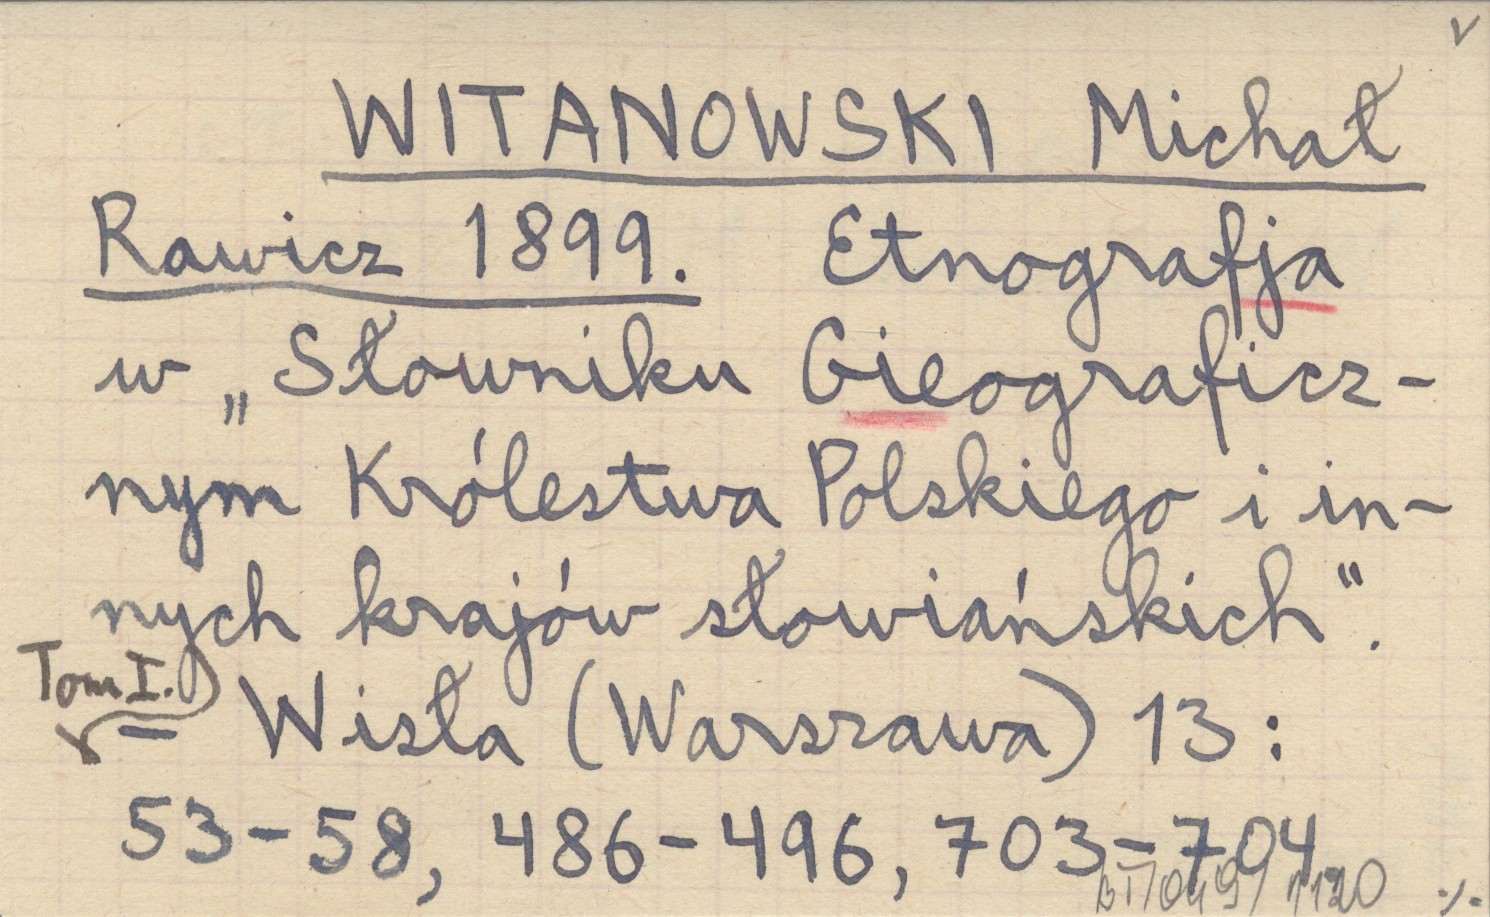 v
WITANOWSKI Michał
Rawicz 1899. Etnografja
w „Słowniku Gieograficz-
nym Królestwa Polskiego i in-
nych krajów słowiańskich".
Tom I.
— Wisła (Warszawa) 13:
53-58, 486-496, 703-704
BI/049/1120 ./.